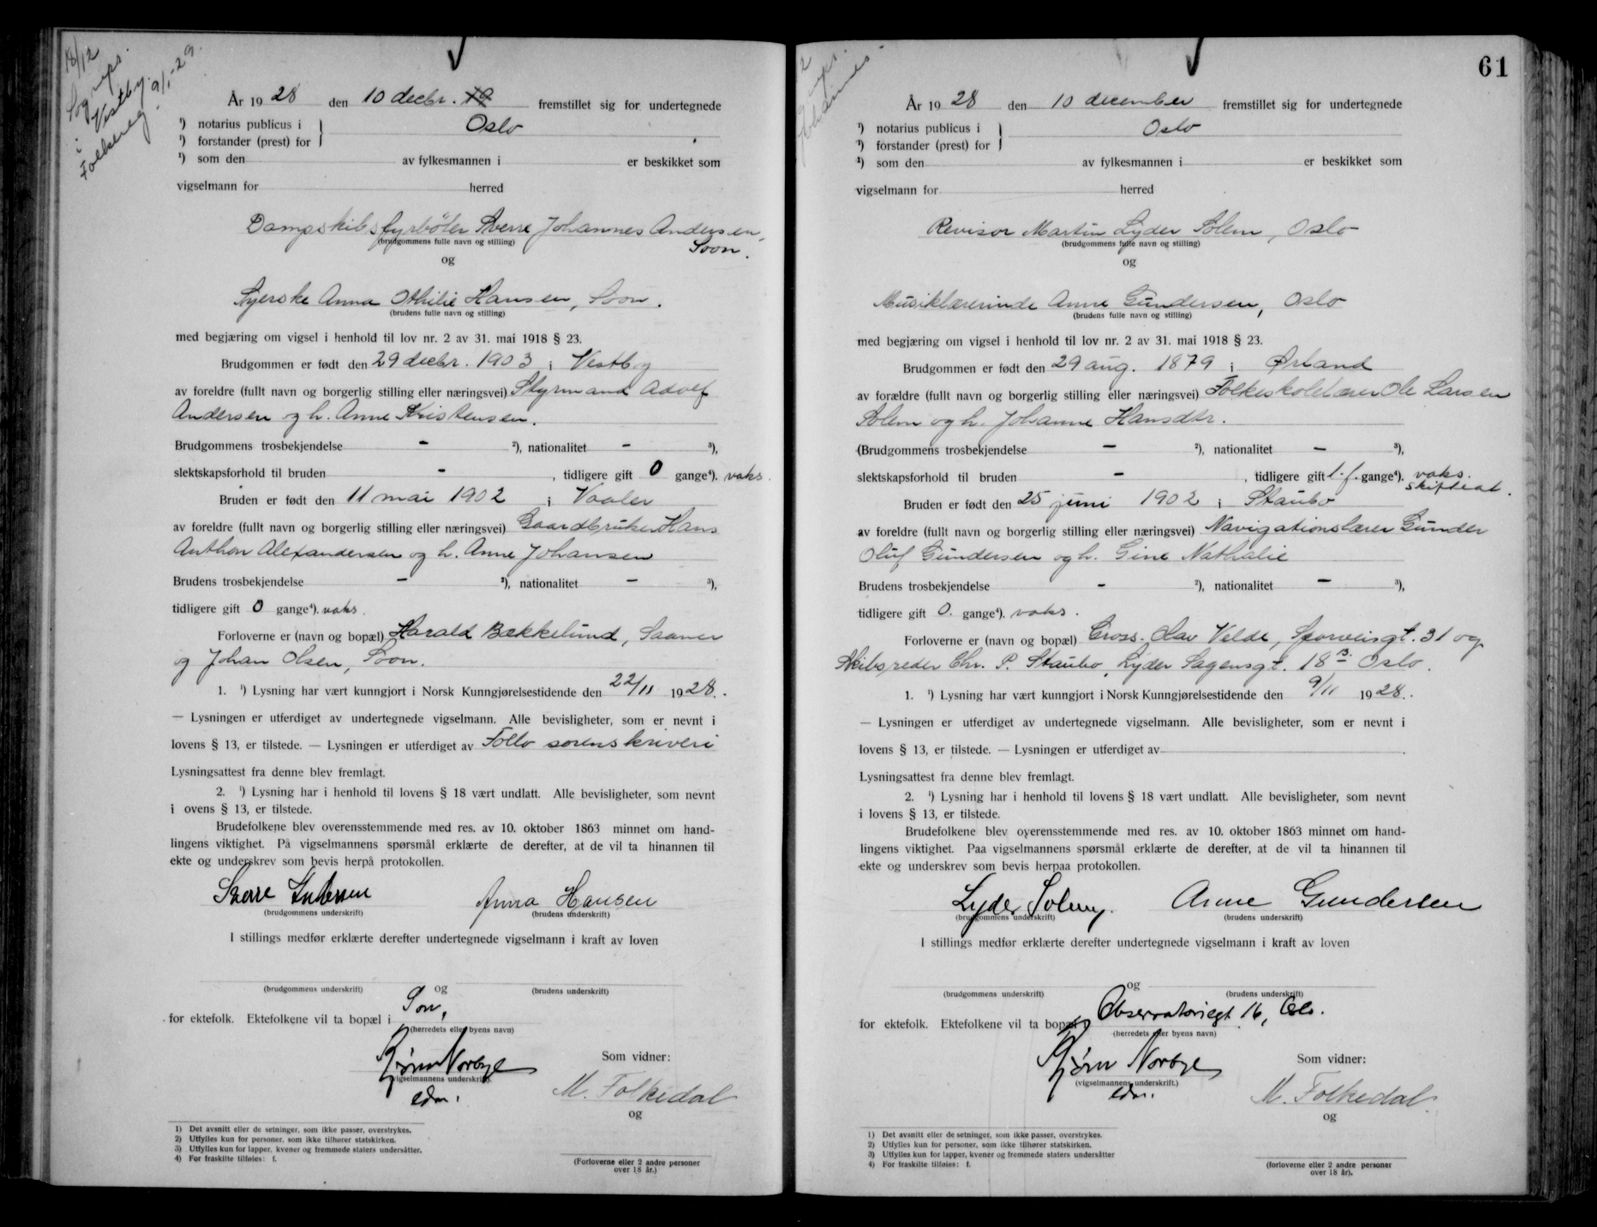 18/12
i Vestby
Folkereg. 9/1-29.
År 1928 den 10 decbr. 19 fremstillet sig for undertegnede
¹) notarius publicus i } Oslo
¹) forstander (prest) for
¹) som den av fylkesmannen i er beskikket som
vigselmann for herred
Dampskibsfyrbøter Sverre Johannes Andersen,
(brudgommens fulle navn og stilling)
Soon.
og
Syerske Anna Othilie Hansen, Soon.
(brudens fulle navn og stilling)
med begjæring om vigsel i henhold til lov nr. 2 av 31. mai 1918 § 23.
Brudgommen er født den 29 decbr. 1903 i Vestby
av foreldre (fullt navn og borgerlig stilling eller næringsvei) Styrmand Adolf
Andersen og h. Anne Kristensen.
Brudgommens trosbekjendelse - ²), nationalitet - ³),
slektskapsforhold til bruden - , tidligere gift 0 gange⁴). voks.
Bruden er født den 11 mai 1902 i Vaaler
av foreldre (fullt navn og borgerlig stilling eller næringsvei) Gaardbruker Hans
Anthon Alexandersen og h. Anne Johansen
Brudens trosbekjendelse - ²), nationalitet - ³),
tidligere gift 0 gange⁴). voks.
Forloverne er (navn og bopæl) Harald Bækkelund, Saaner
og Johan Olsen, Soon.
1. ¹) Lysning har vært kunngjort i Norsk Kunngjørelsestidende den 22/11 1928.
— Lysningen er utferdiget av undertegnede vigselmann. Alle bevisligheter, som er nevnt i
lovens § 13, er tilstede. — Lysningen er utferdiget av Follo sorenskriveri
Lysningsattest fra denne blev fremlagt.
2. ¹) Lysning har i henhold til lovens § 18 vært undlatt. Alle bevisligheter, som nevnt
i ovens § 13, er tilstede.
Brudefolkene blev overensstemmende med res. av 10. oktober 1863 minnet om hand-
lingens viktighet. På vigselmannens spørsmål erklærte de derefter, at de vil ta hinannen til
ekte og underskrev som bevis herpå protokollen.
Sverre Andersen Anna Hansen
(brudgommens underskrift) (brudens underskrift)
I stillings medfør erklærte derefter undertegnede vigselmann i kraft av loven
og
(brudgommens underskrift) (brudens underskrift)
for ektefolk. Ektefolkene vil ta bopæl i Son,
(herredets eller byens navn)
Bjørn Norbye
(vigselmannens underskrift)
edm.
Som vidner:
M. Folkedal
og
1) Det avsnitt eller de setninger, som ikke passer, overstrykes.
2) Utfylles kun for personer, som ikke tilhører statskirken.
3) Utfylles kun for lapper, kvener og fremmede staters undersåtter.
4) For fraskilte tilføies: f.
(Forloverne eller 2 andre personer
over 18 år.)
61
År 1928 den 10 december fremstillet sig for undertegnede
¹) notarius publicus i } Oslo
¹) forstander (prest) for
¹) som den av fylkesmannen i er beskikket som
vigselmann for herred
Revisor Martin Lyder Solem, Oslo
(brudgommens fulle navn og stilling)
og
Musiklærerinde Anne Gundersen, Oslo
(brudens fulle navn og stilling)
med begjæring om vigsel i henhold til lov nr. 2 av 31. mai 1918 § 23.
Brudgommen er født den 29 aug. 1879 i Ørland
av forældre (fullt navn og borgerlig stilling eller næringsvei) Folkeskolelærer Ole Larsen
Solem og h. Johanne Hansdtr.
(Brudgommens trosbekjendelse - ²), nationalitet - ³),
slektskapsforhold til bruden - , tidligere gift 1.f. gange⁴). voks. skifteat.
Bruden er født den 25 juni 1902 i Staubø
av foreldre (fullt navn og borgerlig stilling eller næringsvei) Navigationslærer Gunder
Oluf Gundersen og h. Gine Nathalie
Brudens trosbekjendelse - ²), nationalitet - ³),
tidligere gift 0. gange⁴). voks.
Forloverne er (navn og bopæl) Gross. Olav Velde, Sporveisgt. 31 og
Skibsreder Chr. P. Staubo, Lyder Sagensgt. 18 B. Oslo.
1. ¹) Lysning har vært kunngjort i Norsk Kunngjørelsestidende den 9/11 1928.
— Lysningen er utferdiget av undertegnede vigselmann. Alle bevisligheter, som er nevnt i
lovens § 13, er tilstede. — Lysningen er utferdiget av
Lysningsattest fra denne blev fremlagt.
2. ¹) Lysning har i henhold til lovens § 18 vært undlatt. Alle bevisligheter, som nevnt
i lovens § 13, er tilstede.
Brudefolkene blev overensstemmende med res. av 10. oktober 1863 minnet om hand-
lingens viktighet. Paa vigselmannens spørsmål erklærte de derefter, at de vil ta hinannen til
ekte og underskrev som bevis herpaa protokollen.
Lyder Solem. Anne Gundersen
(brudgommens underskrift) (brudens underskrift)
I stillings medfør erklærte derefter undertegnede vigselmann i kraft av loven
og
(brudgommens underskrift) (brudens underskrift)
for ektefolk. Ektefolkene vil ta bopæl Observatoriegt 16, Oslo.
(herredets eller byens navn)
Bjørn Norbye
(vigselmannens underskrift.)
edm.
Som vidner:
M. Folkedal
og
1) Det avsnitt eller de setninger, som ikke passer, overstrykes.
2) Utfylles kun for personer, som ikke tilhører statskirken.
3) Utfylles kun for lapper, kvener og fremmede staters undersåtter
4) For fraskilte tilføies: f.
(forloverne eller 2 andre personer
over 18 år).